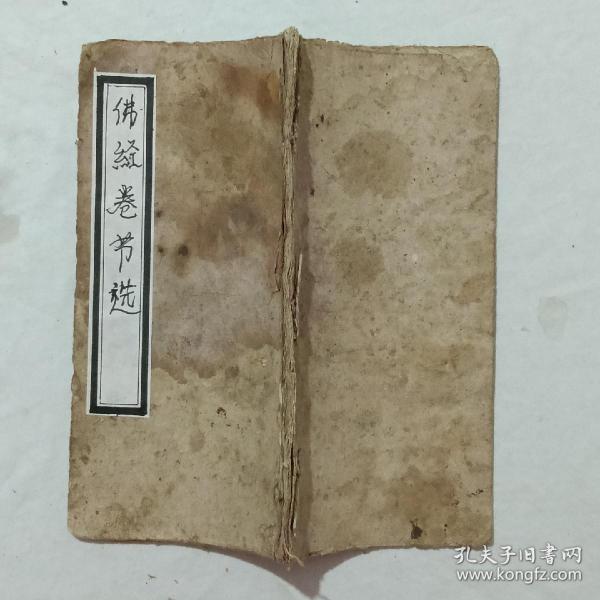 佛经卷节选
孔夫子旧書网
www.kongfz.com